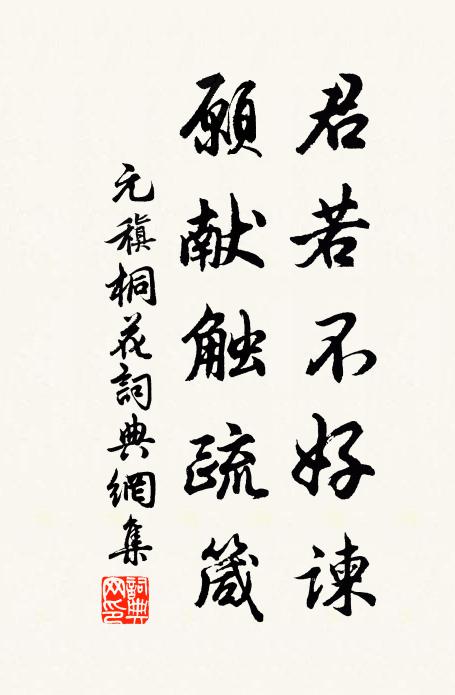 君若不好諫
願献触疏箴
元稹桐花詞典網集
詞典网印